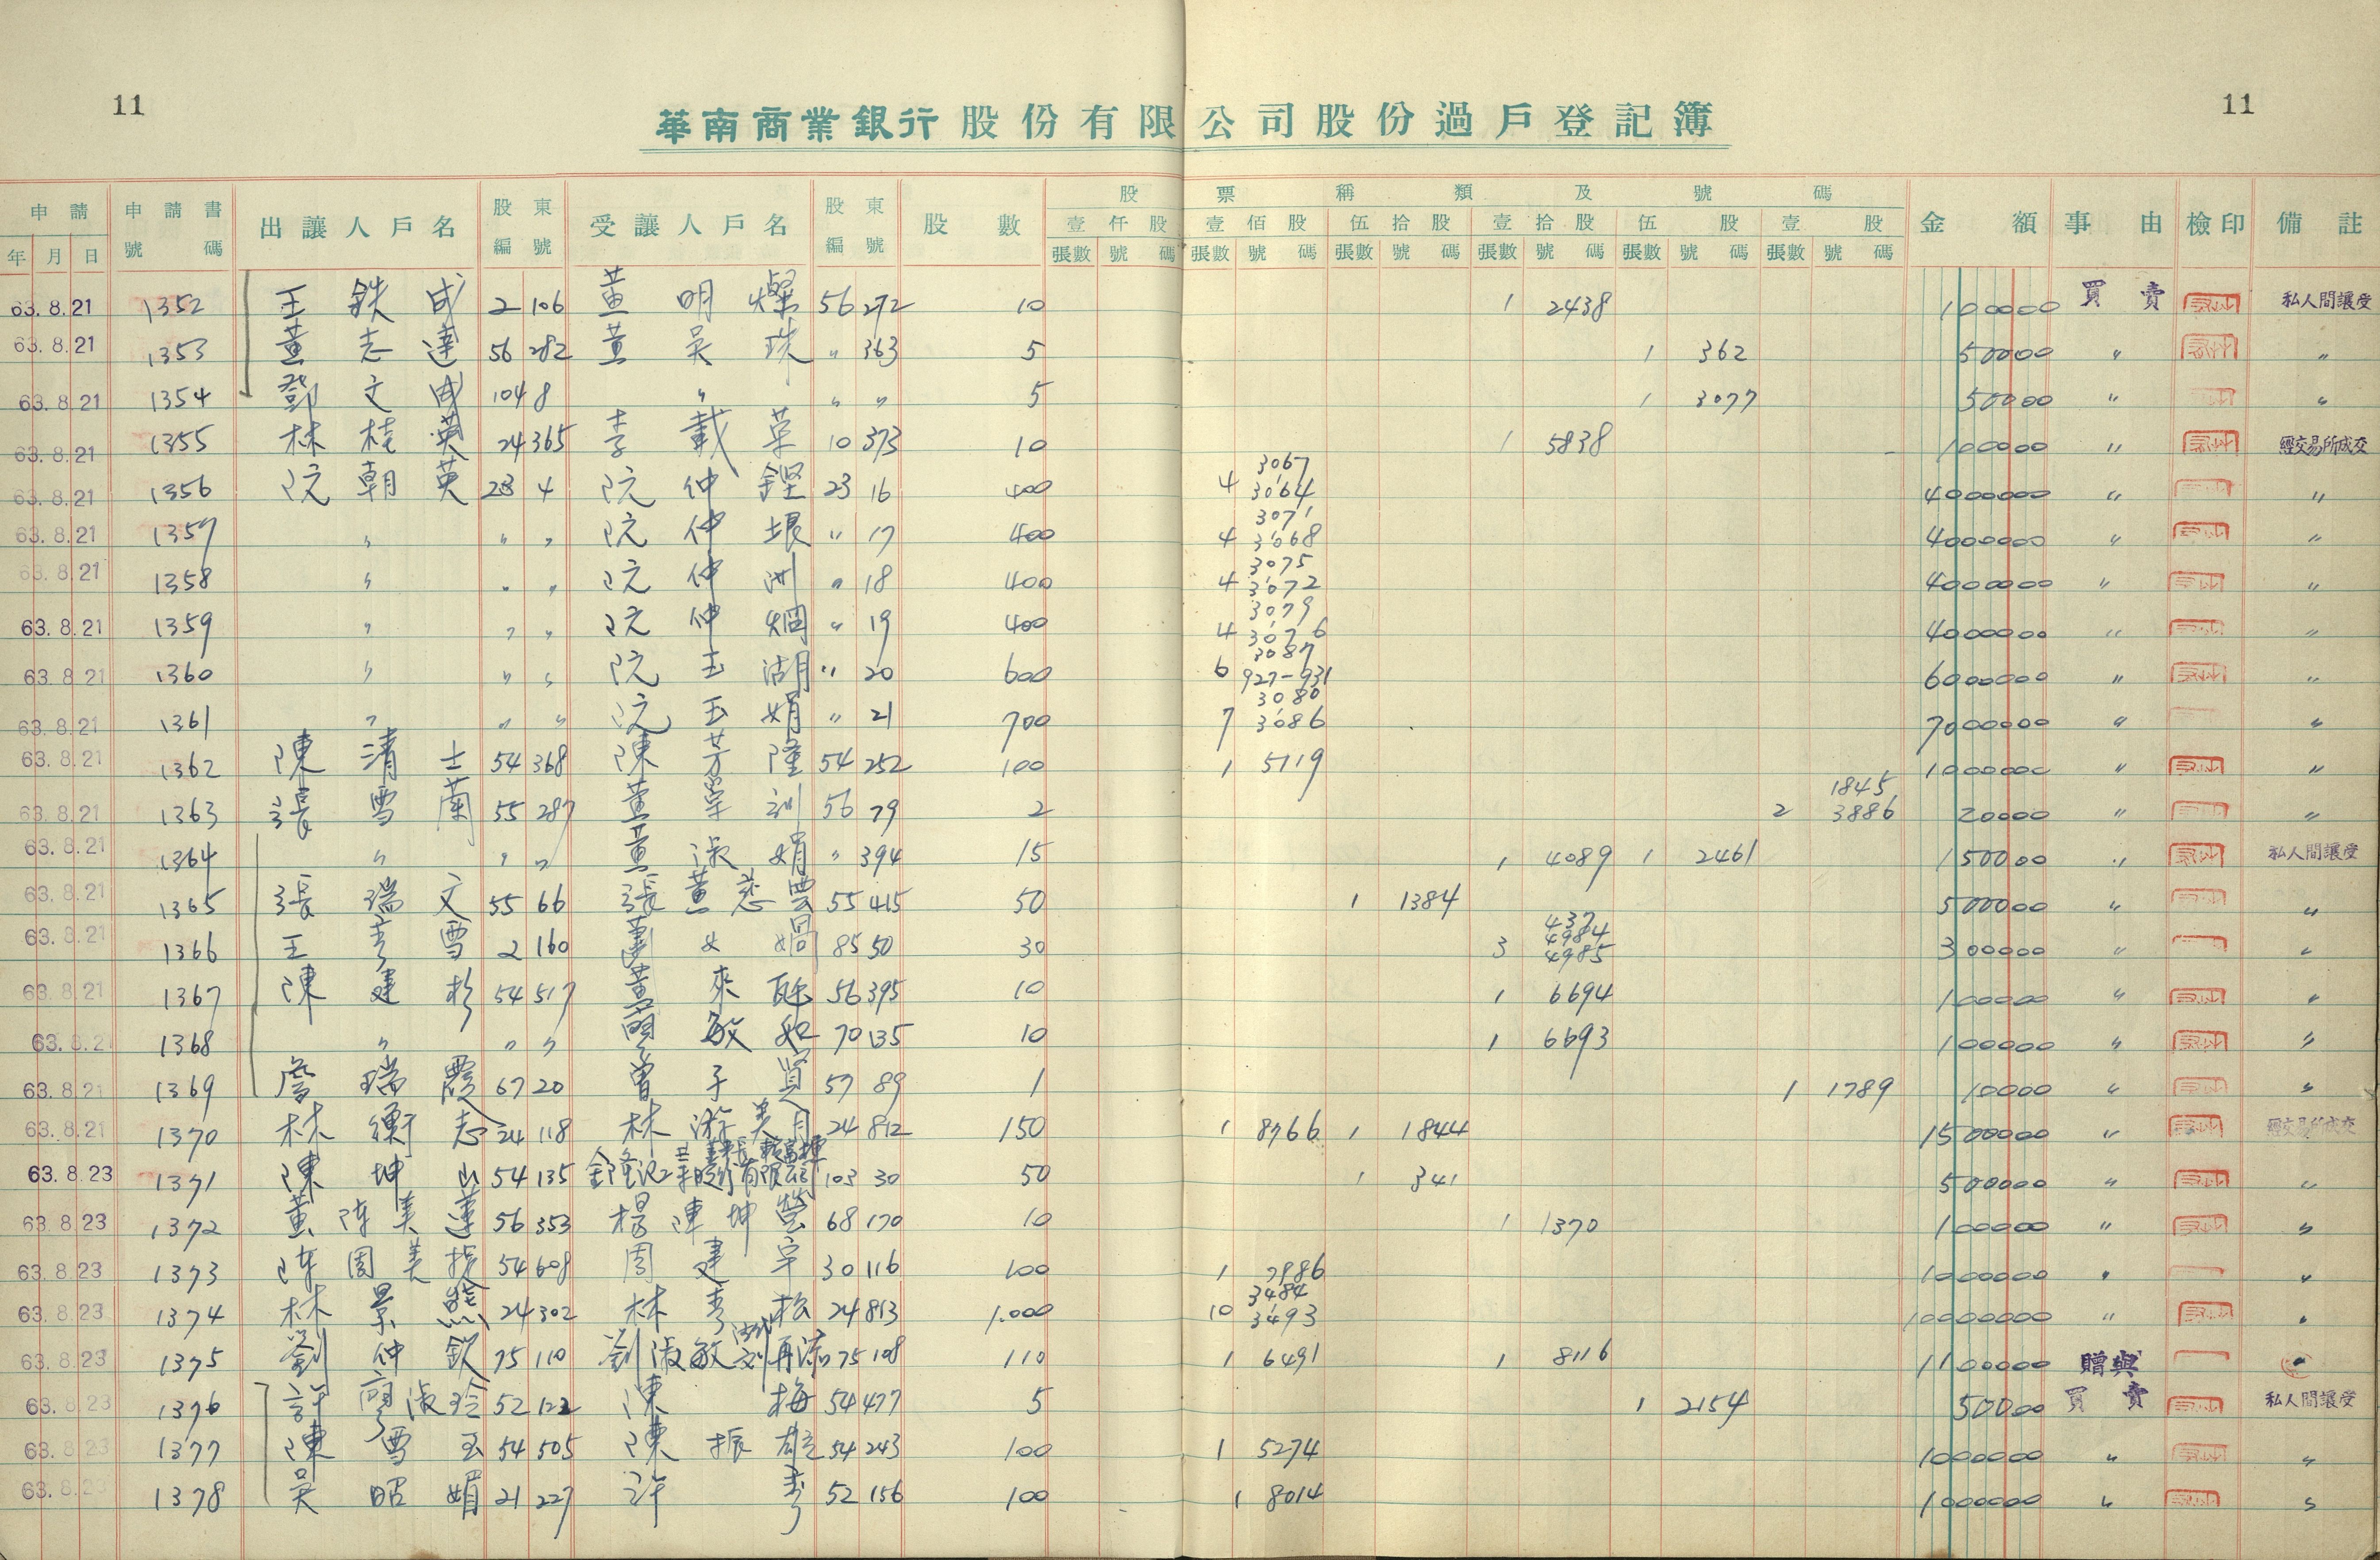 11 11
華南商業銀行股份有限公司股份過戶登記簿
股票稱類及號碼
申請 申請書號碼 出讓人戶名 股東編號 受讓人戶名 股東編號 股數 壹仟股 壹佰股 伍拾股 壹拾股 伍股 壹股 金額 事由 檢印 備註
年 月 日 張數 號碼 張數 號碼 張數 號碼 張數 號碼 張數 號碼 張數 號碼
63.8.21 1352 王鉄成 2 106 黃明燦 56 272 10 1 2438 100000 買賣 私人間讓受
63.8.21 1353 黃志達 56 282 黃吳珠 〃 363 5 1 362 50000 〃 〃
63.8.21 1354 鄧文成 104 8 〃 〃 〃 5 1 3077 50000 〃 〃
63.8.21 1355 林桂英 24 365 李載草 10 373 10 1 5838 100000 〃 經交易所成交
63.8.21 1356 阮朝英 23 4 阮仲鏗 23 16 400 4 3067 3064 4000000 〃 〃
63.8.21 1357 〃 〃 〃 阮仲垠 〃 17 400 4 3071 3068 4000000 〃 〃
63.8.21 1358 〃 〃 〃 阮仲洲 〃 18 400 4 3075 3072 4000000 〃 〃
63.8.21 1359 〃 〃 〃 阮仲烱 〃 19 400 4 3079 3076 4000000 〃 〃
63.8.21 1360 〃 〃 〃 阮玉湖 〃 20 600 6 3087 927-931 6000000 〃 〃
63.8.21 1361 〃 〃 〃 阮玉娟 〃 21 700 7 3080 3086 7000000 〃 〃
63.8.21 1362 陳清士 54 368 陳芳隆 54 252 100 1 5119 1000000 〃 〃
63.8.21 1363 張雪蘭 55 287 黃榮訓 56 79 2 2 1845 3886 20000 〃 〃
63.8.21 1364 〃 〃 〃 黃淑娟 〃 394 15 1 4089 1 2461 150000 〃 私人間讓受
63.8.21 1365 張瑞文 55 66 張黃慈雲 55 415 50 1 1384 500000 〃 〃
63.8.21 1366 王秀雪 2 160 蕭女娟 85 50 30 3 437 4984 4985 300000 〃 〃
63.8.21 1367 陳建杉 54 517 黃來 56 395 10 1 6694 100000 〃 〃
63.8.21 1368 〃 〃 〃 廖敏如 70 135 10 1 6693 100000 〃 〃
63.8.21 1369 詹瑞霞 67 20 曾子賢 57 89 1 1 1789 10000 〃 〃
63.8.21 1370 林衡志 24 118 林游美月 24 812 150 1 8766 1 1844 1500000 〃 經交易所成交
63.8.23 1371 陳坤山 54 135 有限公司 103 30 50 1 341 500000 〃 〃
63.8.23 1372 黃陳美蓮 56 353 楊陳坤瑩 68 170 10 1 1370 100000 〃 〃
63.8.23 1373 陳周美援 54 608 周建宇 30 116 100 1 7986 1000000 〃 〃
63.8.23 1374 林景熊 24 302 林秀松 24 813 1.000 10 3484 3493 10000000 〃 〃
63.8.23 1375 劉仲欽 75 110 劉淑敏 劉再添 75 108 110 1 6491 1 8116 1100000 贈與 〃
63.8.23 1376 許廖淑玲 52 122 陳梅 54 477 5 1 2154 50000 買賣 私人間讓受
63.8.23 1377 陳雪玉 54 505 陳振雄 54 243 100 1 5274 1000000 〃 〃
63.8.23 1378 吳昭媚 21 227 許秀 52 156 100 1 8014 1000000 〃 〃